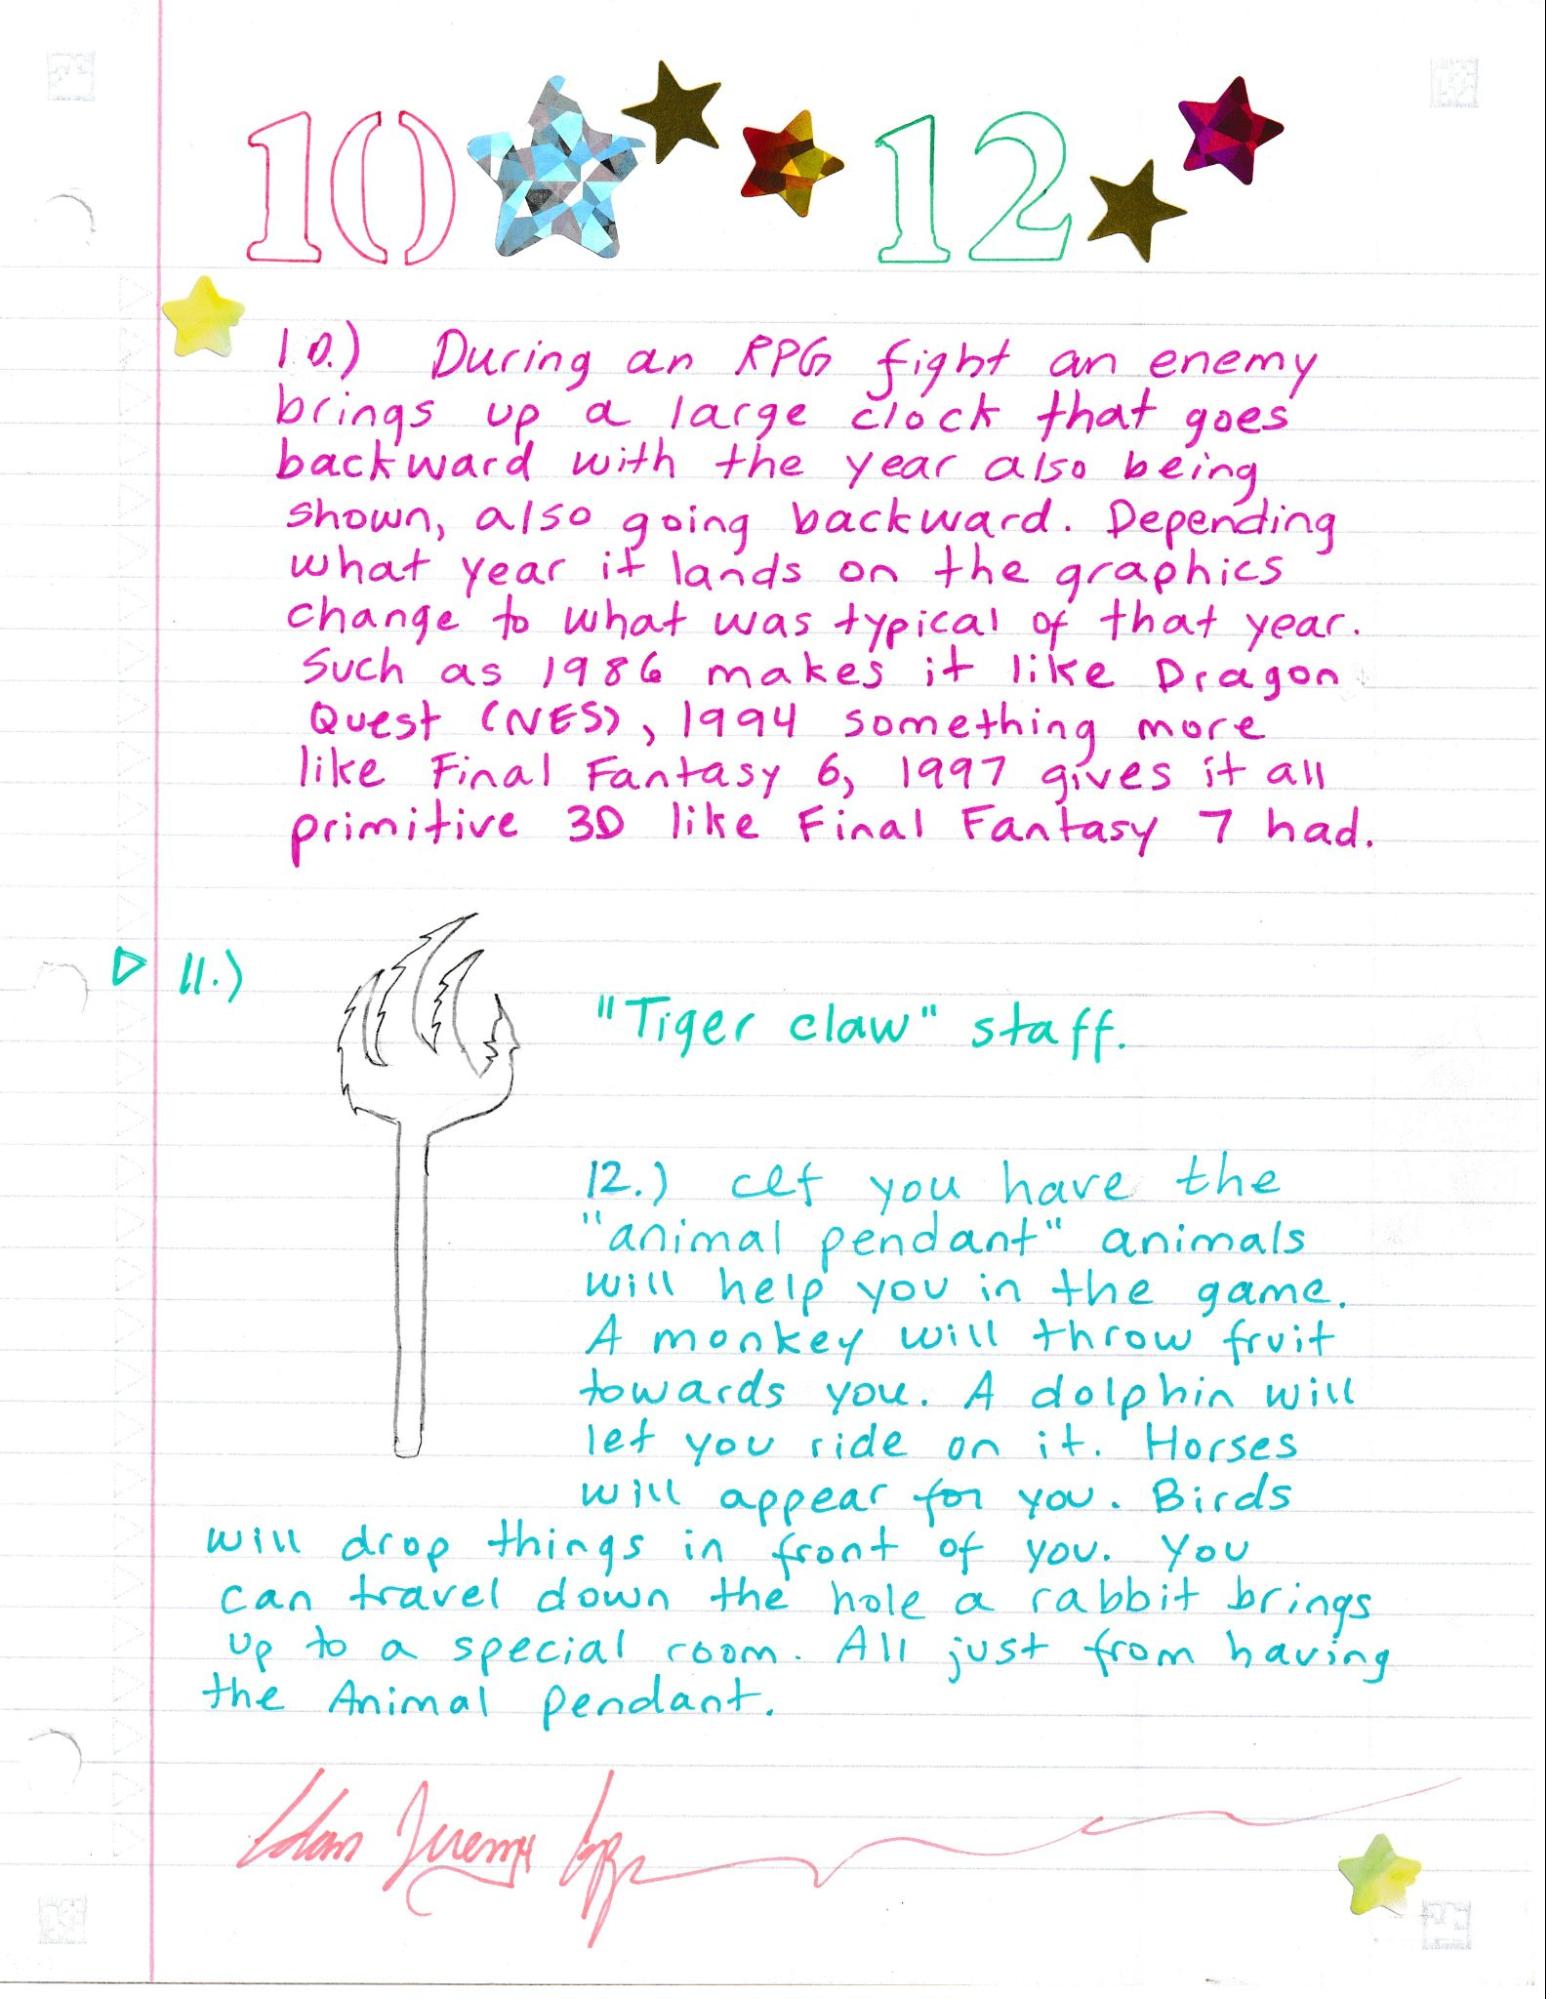 10 12
10.) During an RPG fight an enemy
brings up a large clock that goes
backward with the year also being
shown, also going backward. Depending
what year it lands on the graphics
change to what was typical of that year.
Such as 1986 makes it like Dragon
Quest (NES), 1994 something more
like Final Fantasy 6, 1997 gives it all
primitive 3D like Final Fantasy 7 had.
11.)
"Tiger claw" staff.
12.) If you have the
"animal pendant" animals
will help you in the game.
A monkey will throw fruit
towards you. A dolphin will
let you ride on it. Horses
will appear for you. Birds
will drop things in front of you. You
can travel down the hole a rabbit brings
up to a special room. All just from having
the Animal pendant.
Jeremy